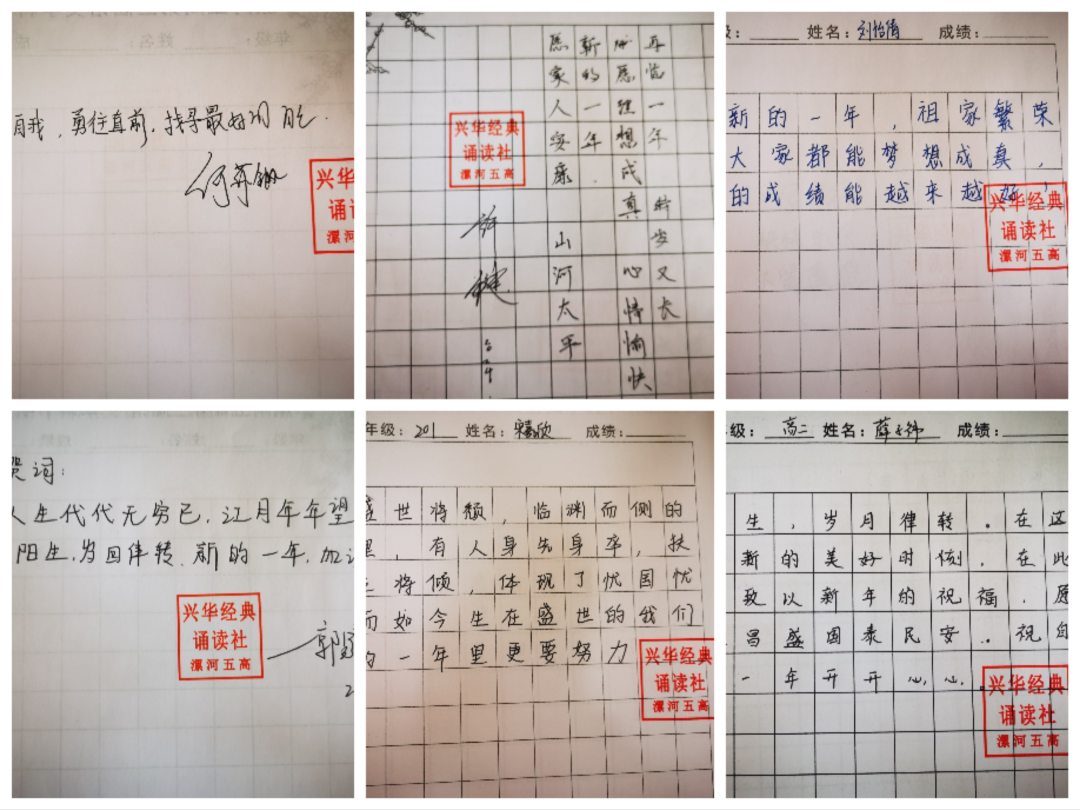 自我，勇往直前，找寻最好的自己.
兴华经典
诵读社
漯河五高
再临一年 时岁又长
所愿理想成真 心情愉快
新的一年，
愿家人安康 山河太平
兴华经典
诵读社
漯河五高
级： 姓名：刘怡倩 成绩：
新的一年，祖家繁荣
大家都能梦想成真，
的成绩能越来越好，
兴华经典
诵读社
漯河五高
贺词：
人生代代无穷已，江月年年望
阳生，岁回律转，新的一年，
兴华经典
诵读社
漯河五高
年级：201 姓名： 成绩：
盛世将颓，临渊而侧的
里，有人身先身卒，扶
将倾，体现了忧国忧
而如今生在盛世的我们
的一年里更要努力
兴华经典
诵读社
漯河五高
级：高二 姓名：薛 成绩：
生，岁月律转。在这
新的美好时刻，在此
致以新年的祝福，愿
昌盛国泰民安．．祝自
一年开开心心．
兴华经典
诵读社
漯河五高